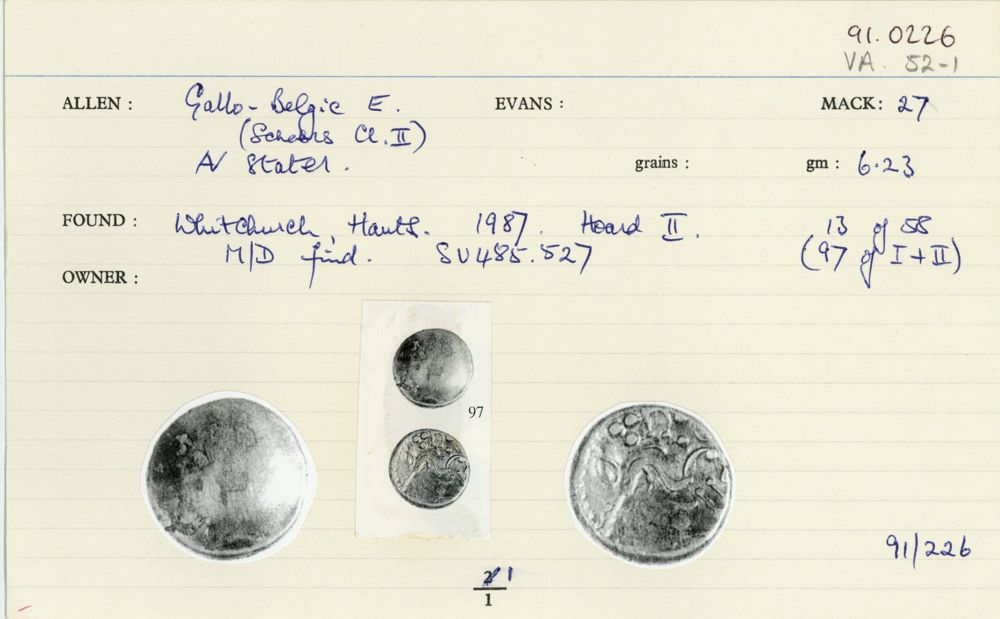 91.0226
VA. 52-1
ALLEN : Gallo-Belgic E. EVANS : MACK: 27
(Scheers Cl. II)
N Stater. grains : gm : 6.23
FOUND : Whitchurch, Hants. 1987. Hoard II. 13 of 58
M/D find. SU485.527 (97 of I + II)
OWNER :
97
91/226
1
1